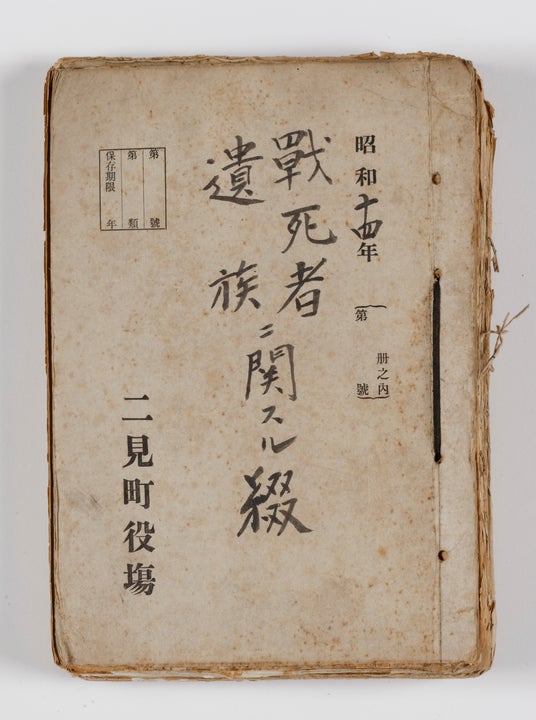 昭和十四年
第
册之內
號
戰死者
遺族
ニ関スル綴
第 號
第 類
保存期限 年
二見町役塲